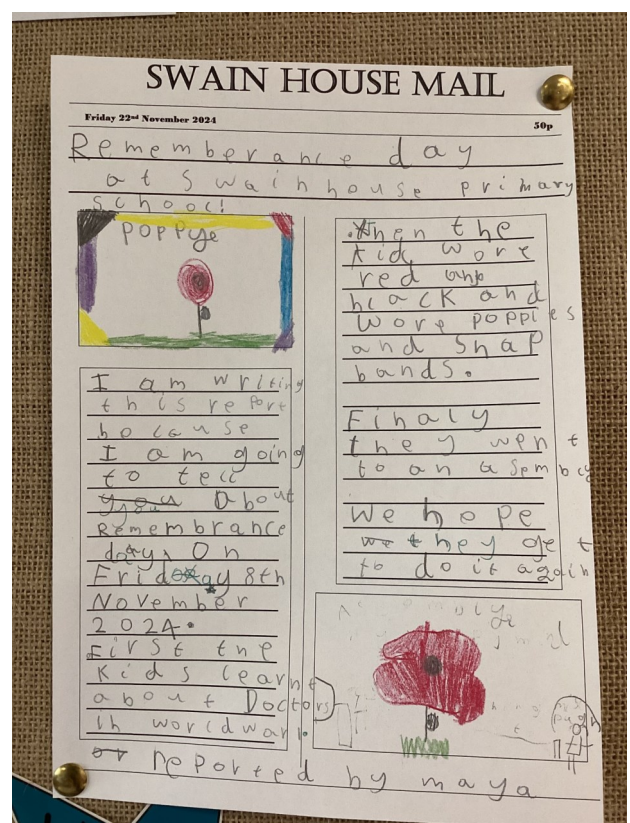 SWAIN HOUSE MAIL
Friday 22nd November 2024
50p
Rememberance day
at swainhouse primary
school!
poppye
I am writing
this report
because
I am going
to tell
you about
Remembrance
day. On
Friday 8th
November
2024.
First the
kids learnt
about Doctors
in worldwar 1.
Then the
kids wore
red and
black and
wore poppies
and snap
bands.
Finaly
they went
to an asembly
We hope
they get
to do it again
reported by maya